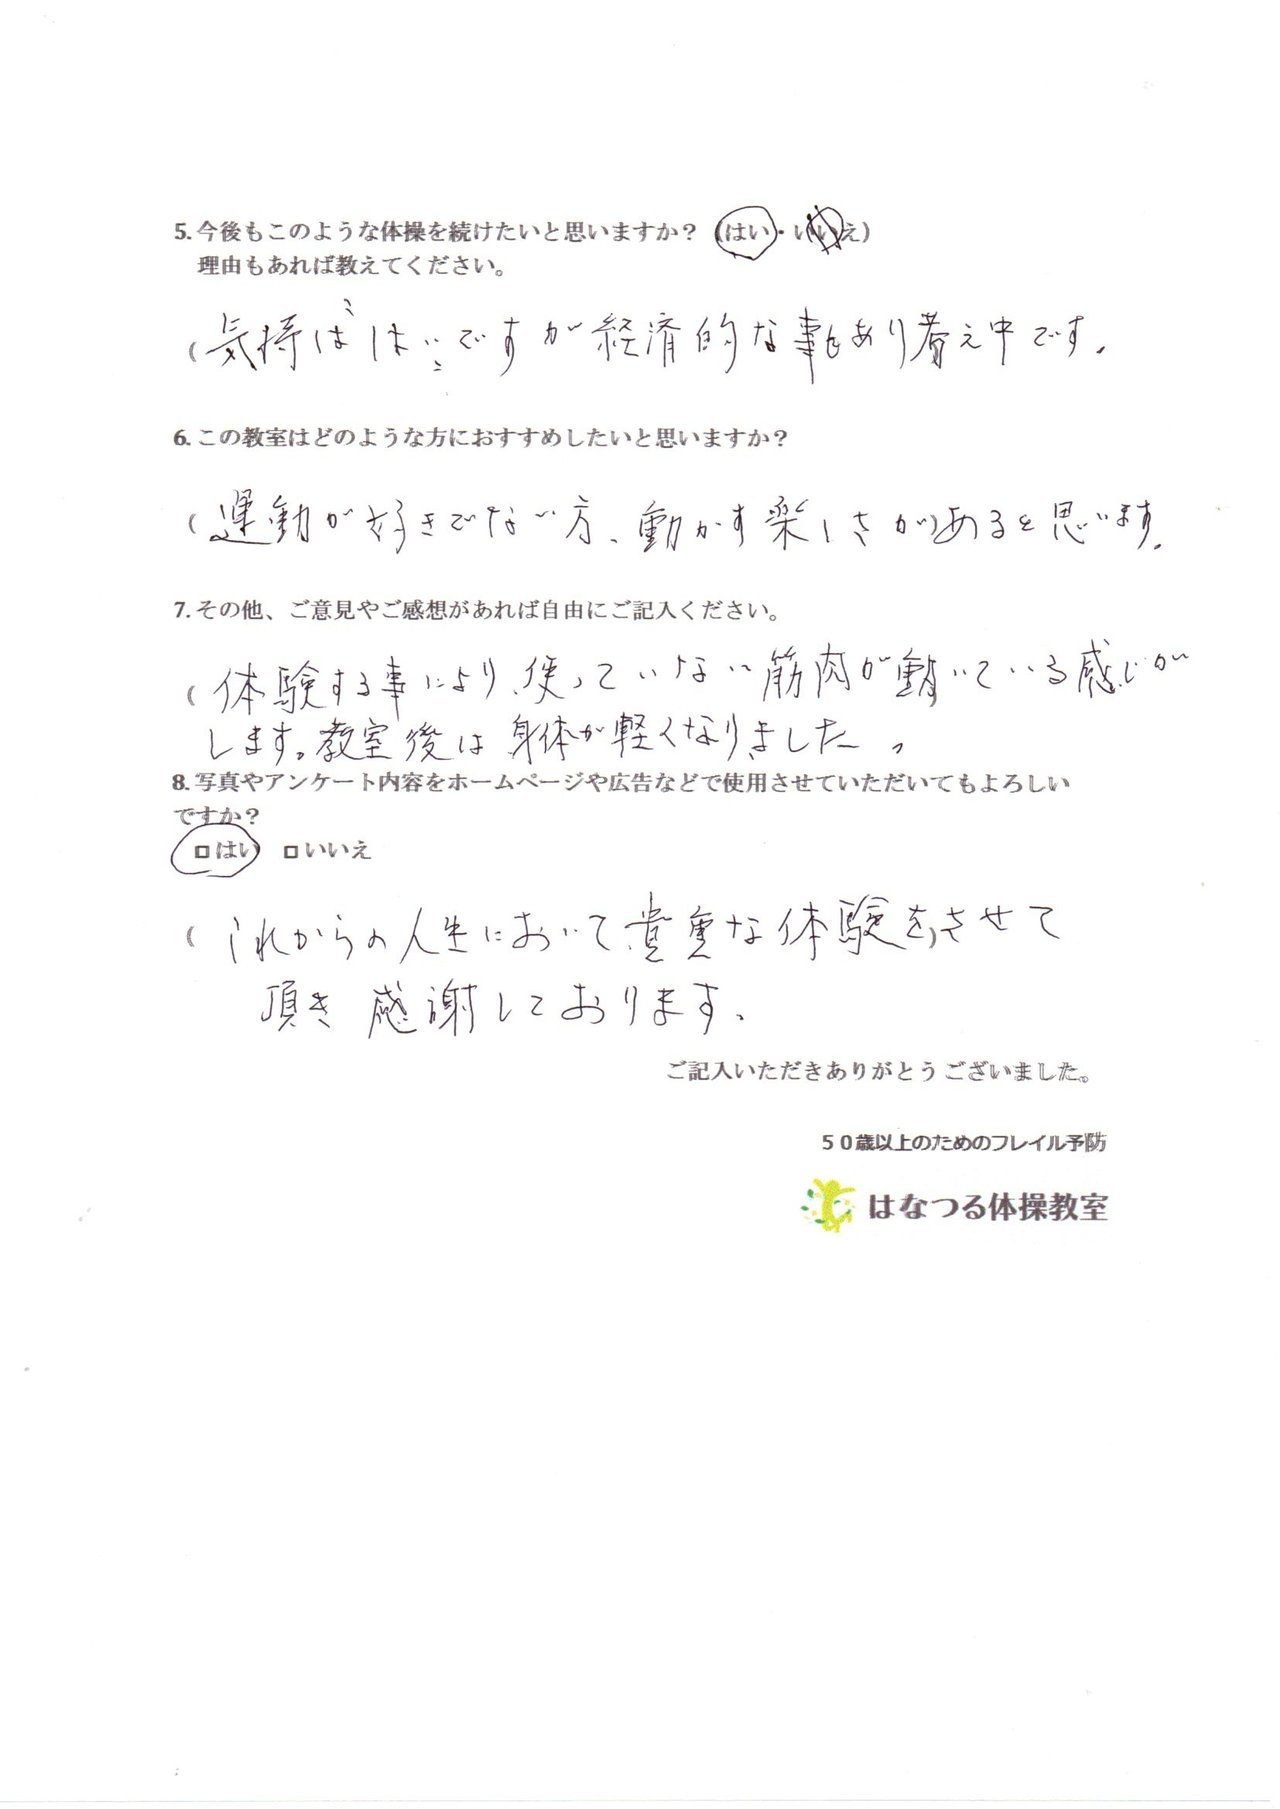 5. 今後もこのような体操を続けたいと思いますか？ (はい・いいえ)
理由もあれば教えてください。
( 気持は"はい"ですが経済的な事もあり考え中です.
6. この教室はどのような方におすすめしたいと思いますか？
( 運動が好きでない方、動かす楽しさがあると思います. )
7. その他、ご意見やご感想があれば自由にご記入ください。
( 体験する事により、使っていない筋肉が動いている感じが )
します。教室後は身体が軽くなりました。
8. 写真やアンケート内容をホームページや広告などで使用させていただいてもよろしい
ですか？
□はい □いいえ
( これからの人生において貴重な体験を)させて
頂き感謝しております.
ご記入いただきありがとうございました。
５０歳以上のためのフレイル予防
はなつる体操教室